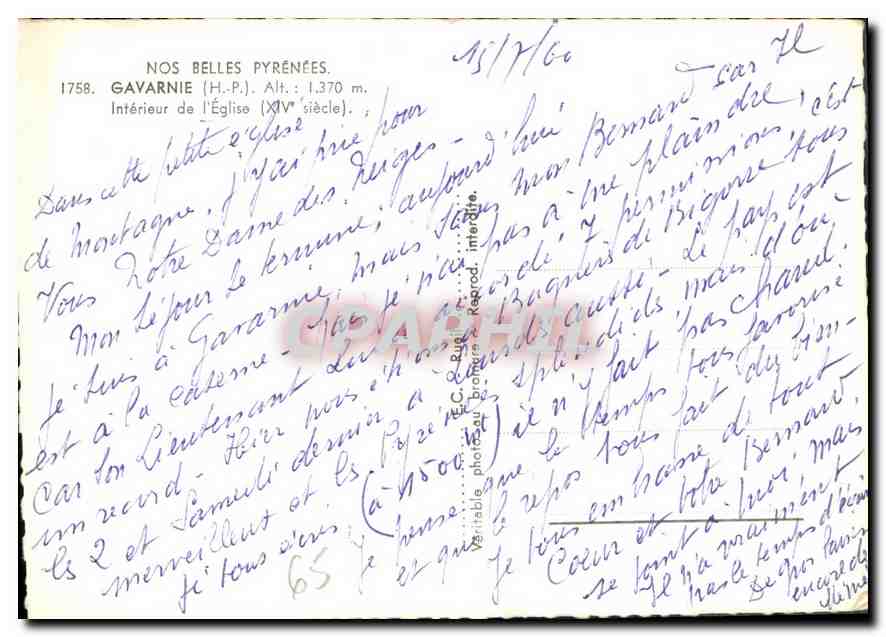 NOS BELLES PYRÉNÉES.
1758. GAVARNIE (H.-P.). Alt. : 1.370 m.
Intérieur de l'Église (XIVe siècle).
15/7/60
Dans cette petite église
de Montagne, j'ai prié pour
Vous Notre Dame des Neiges -
Mon séjour se termine, aujourd'hui
je suis à Gavarnie, mais sans mon Bernard car Il
est à la caserne - je n'ai pas à me plaindre,
car son Lieutenant lui a accordé 7 permissions, c'est
un record. Hier nous étions à Bagnères de Bigorre tous
les 2 et Samedi dernier à Lourdes aussi - Le pays est
merveilleux et les Pyrénées splendides mais d'où
je vous écris (à 1500 m) il n'y fait pas chaud.
je pense que le temps vous favorise
et que le repos vous fait du bien -
je vous embrasse de tout
Coeur et votre Bernard,
se joint à moi, mais
Il n'a vraiment
pas le temps d'écrire
De gros baisers
encore de
65
E.C.
Véritable photo au bromure - Reprod. interdite.
CPARHIL